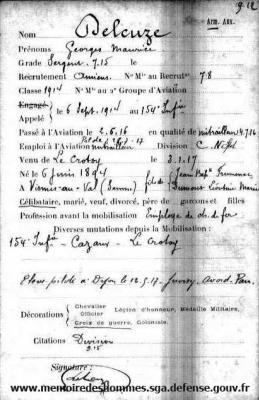 912
Arm. Aux.
Nom Deleuze
Prénoms Georges Maurice
Grade Sergent 7.15 le
Recrutement Amiens N° Mle au Recrut^t 78
Classe 1914 N° Mle au 2e Groupe d'Aviation
Engagé
Appelé le 6 Sept. 1914 au 154e Inf^ie
Passé à l'Aviation le 2.6.16 en qualité de mitrailleur
Emploi à l'Aviation mitrailleur Division
Venu de Le Crotoy le 3.1.17
Né le 6 Juin 1894 fils de Jean
à au Val (Somme) et de Marie
Célibataire, marié, veuf, divorcé, père de garçons et filles
Profession avant la mobilisation Employé de ch. de fer
Diverses mutations depuis la Mobilisation :
154e Inf^ie - Cazaux - Le Crotoy
Elève pilote à Dijon le 12.5.17 Avord. Pau.
Décorations Chevalier Officier Légion d'honneur, Médaille Militaire,
Croix de guerre, Coloniale.
Citations Division
Signature :
www.memoiredeshommes.sga.defense.gouv.fr